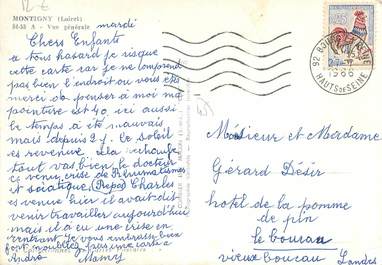 12 €
MONTIGNY (Loiret)
54-55 A - Vue générale
mardi
Chers Enfants
a tous hasard je risque
cette carte car je ne comprend
pas bien l'endroit ou vous etes
merci de penser à moi ma
pointure est 40 ici aussi
le temps a été mauvais
mais depuis 2 j. Le soleil
est revenue il a rechauffé
tout va bien le docteur
et venu, crise de Rhumatismes
et sciatique (Repos) Charles
est venue hier il avait dit
venir travailler aujourd'hui
mais il a eu une crise en
rentrant. Je vous embrasse bien
fort, n'oubliez pas une carte a
André Mamy
92 BOURG LA REINE
1966
HAUTS DE SEINE
Monsieur et Madame
Gérard Désir
hotel de la pomme
de pin
le bourau
vieux boucau Landes